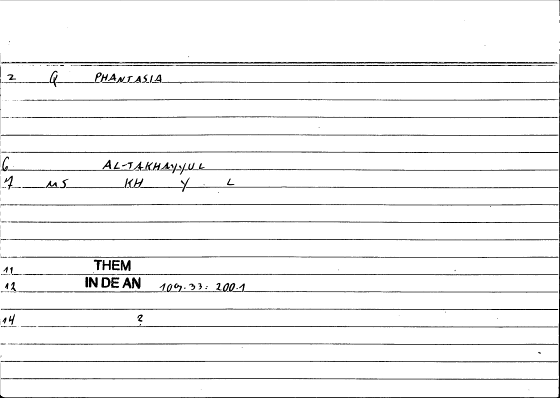 2 G PHANTASIA
6 AL-TAKHAYYUL
7 MS KH Y L
11 THEM
12 IN DE AN 109.33: 200.1
14 ?